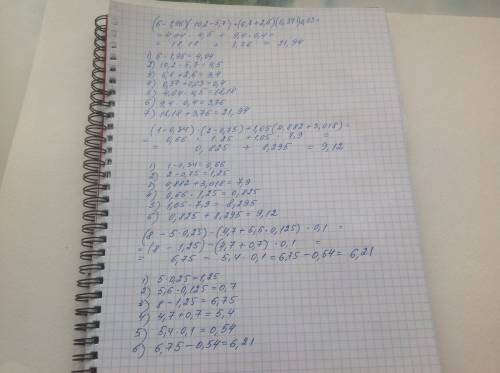 (6-1,96)·(10,2-5,7)+(6,8+2,6)(0,37+0,03)=
= 4,04 · 4,5 + 9,4·0,4=
= 18,18 + 3,76 = 21,94
1) 6-1,96=4,04
2) 10,2-5,7=4,5
3) 6,8+2,6=9,4
4) 0,37+0,03=0,4
5) 4,04·4,5=18,18
6) 9,4·0,4=3,76
7) 18,18+3,76=21,94
(1-0,34)·(2-0,75)+1,05(4,882+3,018)=
= 0,66 · 1,25 +1,05· 7,9 =
= 0,825 + 8,295 = 9,12
1) 1-0,34=0,66
2) 2-0,75=1,25
3) 4,882+3,018=7,9
4) 0,66·1,25=0,825
5) 1,05·7,9=8,295
6) 0,825+8,295=9,12
(8-5·0,25)-(4,7+5,6·0,125)·0,1 =
=(8-1,25)-(4,7+0,7)·0,1 =
= 6,75 - 5,4·0,1=6,75-0,54=6,21
1) 5·0,25=1,25
2) 5,6·0,125=0,7
3) 8-1,25=6,75
4) 4,7+0,7=5,4
5) 5,4·0,1=0,54
6) 6,75-0,54=6,21